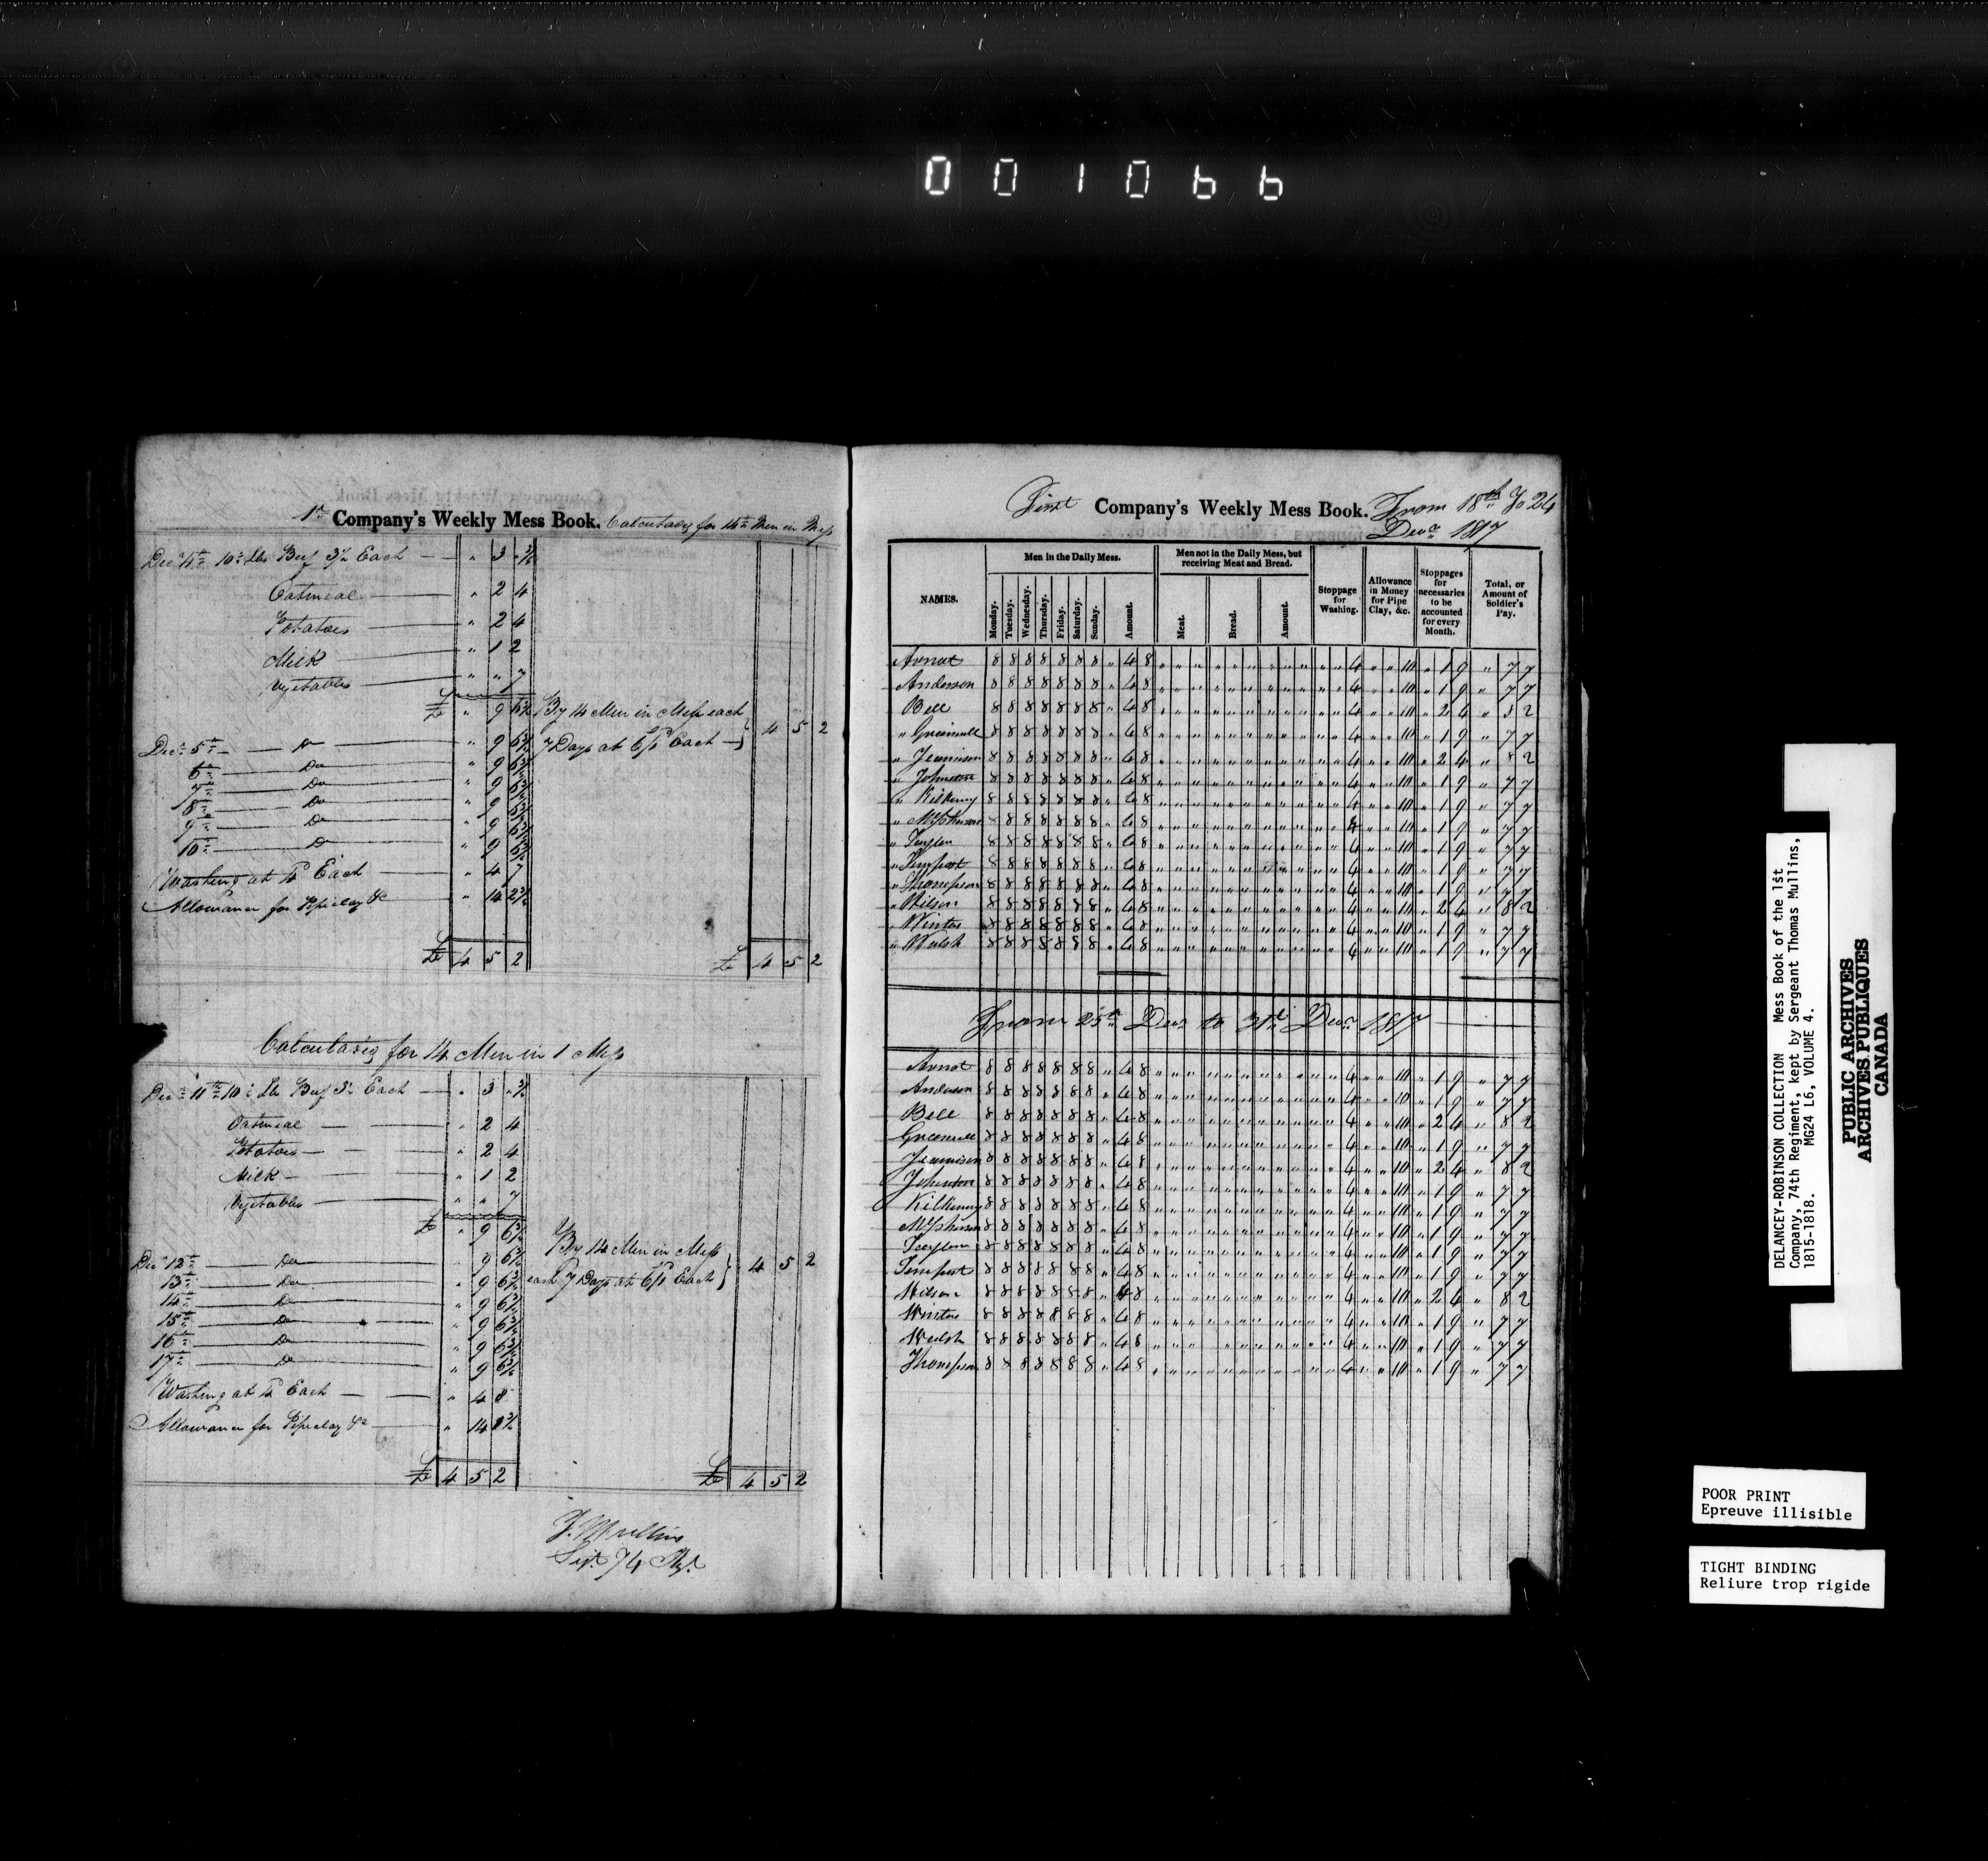 001066
1st Company's Weekly Mess Book. Calculating for 14 Men in Mess
Decr 4th 10½ Lbs Beef 3½ Each " 3 " ¾
Oatmeal " 2 4
Potatoes " 2 4
Milk " 1 2
Vegetables " " 7
£ " 9 5¾
By 14 Men in Mess each
7 Days at 6/1 Each } 4 5 2
Decr 5th Do " 9 5¾
6th Do " 9 5¾
7th Do " 9 5¾
8th Do " 9 5¾
9th Do " 9 5¾
10th Do " 9 5¾
Washing at 4d Each " 4 7
Allowance for Pipeclay &c " 14 2¾
£ 4 5 2 £ 4 5 2
Calculating for 14 Men in 1 Mess
Decr 11th 10½ Lbs Beef 3½ Each " 3 " ¾
Oatmeal " 2 4
Potatoes " 2 4
Milk " 1 2
Vegetables " " 7
£ " 9 6¾
By 14 Men in Mess
each 7 Days at 6/1 Each } 4 5 2
Decr 12th Do " 9 6¾
13th Do " 9 6¾
14th Do " 9 6¾
15th Do " 9 6¾
16th Do " 9 6¾
17th Do " 9 6¾
Washing at 4d Each " 4 8
Allowance for Pipeclay &c " 14
£ 4 5 2 £ 4 5 2
T. Mullins
Serjt. 74 Regt.
First Company's Weekly Mess Book. From 18th To 24
Decr 1817
NAMES.
Men in the Daily Mess.
Monday. Tuesday. Wednesday. Thursday. Friday. Saturday. Sunday. Amount.
Men not in the Daily Mess, but receiving Meat and Bread.
Meat. Bread. Amount.
Stoppage for Washing.
Allowance in Money for Pipe Clay, &c.
Stoppages for necessaries to be accounted for every Month.
Total, or Amount of Soldier's Pay.
Arnot 8 8 8 8 8 8 8 " 4 8 " " " " " " " " " " " 4 " " 10 " 1 9 " 7 7
Anderson 8 8 8 8 8 8 8 " 4 8 " " " " " " " " " " " 4 " " 10 " 1 9 " 7 7
Bell 8 8 8 8 8 8 8 " 4 8 " " " " " " " " " " " 4 " " 10 " 2 4 " 8 2
" Greenwell 8 8 8 8 8 8 8 " 4 8 " " " " " " " " " " " 4 " " 10 " 1 9 " 7 7
" Jennison 8 8 8 8 8 8 8 " 4 8 " " " " " " " " " " " 4 " " 10 " 2 4 " 8 2
" Johnston 8 8 8 8 8 8 8 " 4 8 " " " " " " " " " " " 4 " " 10 " 1 9 " 7 7
" Kilkenny 8 8 8 8 8 8 8 " 4 8 " " " " " " " " " " " 4 " " 10 " 1 9 " 7 7
" McPherson 8 8 8 8 8 8 8 " 4 8 " " " " " " " " " " " 4 " " 10 " 1 9 " 7 7
" 8 8 8 8 8 8 8 " 4 8 " " " " " " " " " " " 4 " " 10 " 1 9 " 7 7
" Tempest 8 8 8 8 8 8 8 " 4 8 " " " " " " " " " " " 4 " " 10 " 1 9 " 7 7
" Thompson 8 8 8 8 8 8 8 " 4 8 " " " " " " " " " " " 4 " " 10 " 1 9 " 7 7
" Wilson 8 8 8 8 8 8 8 " 4 8 " " " " " " " " " " " 4 " " 10 " 2 4 " 8 2
" Winters 8 8 8 8 8 8 8 " 4 8 " " " " " " " " " " " 4 " " 10 " 1 9 " 7 7
" Walsh 8 8 8 8 8 8 8 " 4 8 " " " " " " " " " " " 4 " " 10 " 1 9 " 7 7
From 25th Decr to 31st Decr 1817
Arnot 8 8 8 8 8 8 8 " 4 8 " " " " " " " " " " " 4 " " 10 " 1 9 " 7 7
Anderson 8 8 8 8 8 8 8 " 4 8 " " " " " " " " " " " 4 " " 10 " 1 9 " 7 7
Bell 8 8 8 8 8 8 8 " 4 8 " " " " " " " " " " " 4 " " 10 " 2 4 " 8 2
Greenwell 8 8 8 8 8 8 8 " 4 8 " " " " " " " " " " " 4 " " 10 " 1 9 " 7 7
Jennison 8 8 8 8 8 8 8 " 4 8 " " " " " " " " " " " 4 " " 10 " 2 4 " 8 2
Johnston 8 8 8 8 8 8 8 " 4 8 " " " " " " " " " " " 4 " " 10 " 1 9 " 7 7
Kilkenny 8 8 8 8 8 8 8 " 4 8 " " " " " " " " " " " 4 " " 10 " 1 9 " 7 7
McPherson 8 8 8 8 8 8 8 " 4 8 " " " " " " " " " " " 4 " " 10 " 1 9 " 7 7
8 8 8 8 8 8 8 " 4 8 " " " " " " " " " " " 4 " " 10 " 1 9 " 7 7
Tempest 8 8 8 8 8 8 8 " 4 8 " " " " " " " " " " " 4 " " 10 " 1 9 " 7 7
Wilson 8 8 8 8 8 8 8 " 4 8 " " " " " " " " " " " 4 " " 10 " 2 4 " 8 2
Winters 8 8 8 8 8 8 8 " 4 8 " " " " " " " " " " " 4 " " 10 " 1 9 " 7 7
Welsh 8 8 8 8 8 8 8 " 4 8 " " " " " " " " " " " 4 " " 10 " 1 9 " 7 7
Thompson 8 8 8 8 8 8 8 " 4 8 " " " " " " " " " " " 4 " " 10 " 1 9 " 7 7
DELANCEY-ROBINSON COLLECTION Mess Book of the 1st
Company, 74th Regiment, kept by Sergeant Thomas Mullins,
1815-1818. MG24 L6, VOLUME 4.
PUBLIC ARCHIVES
ARCHIVES PUBLIQUES
CANADA
POOR PRINT
Epreuve illisible
TIGHT BINDING
Reliure trop rigide